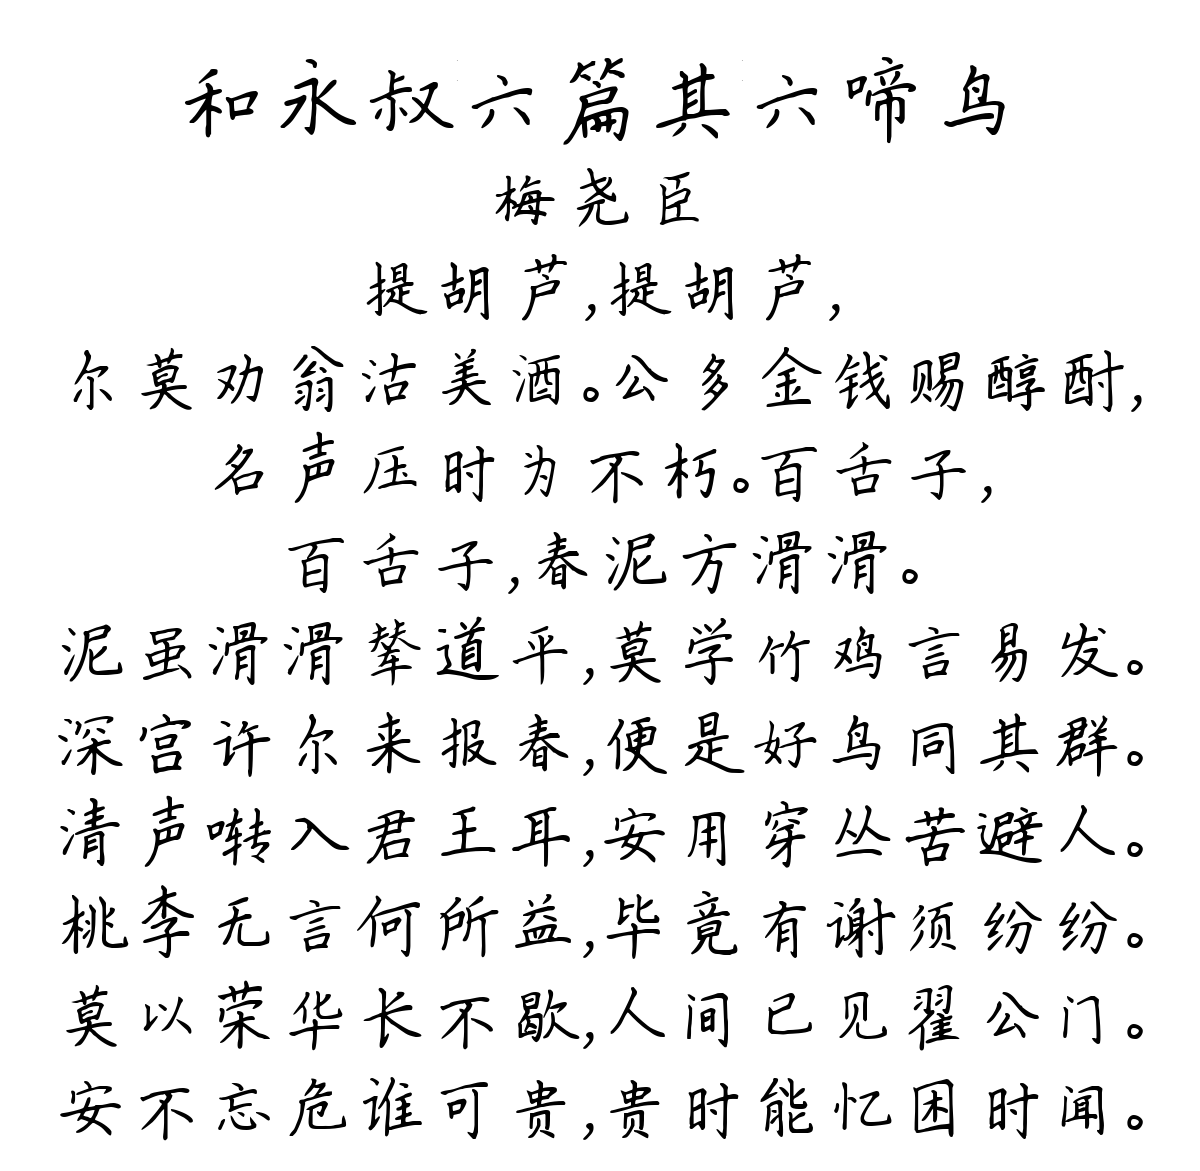 和永叔六篇其六啼鸟
梅尧臣
提胡芦,提胡芦,
尔莫劝翁沽美酒。公多金钱赐醇酎,
名声压时为不朽。百舌子,
百舌子,春泥方滑滑。
泥虽滑滑辇道平,莫学竹鸡言易发。
深宫许尔来报春,便是好鸟同其群。
清声啭入君王耳,安用穿丛苦避人。
桃李无言何所益,毕竟有谢须纷纷。
莫以荣华长不歇,人间已见翟公门。
安不忘危谁可贵,贵时能忆困时闻。